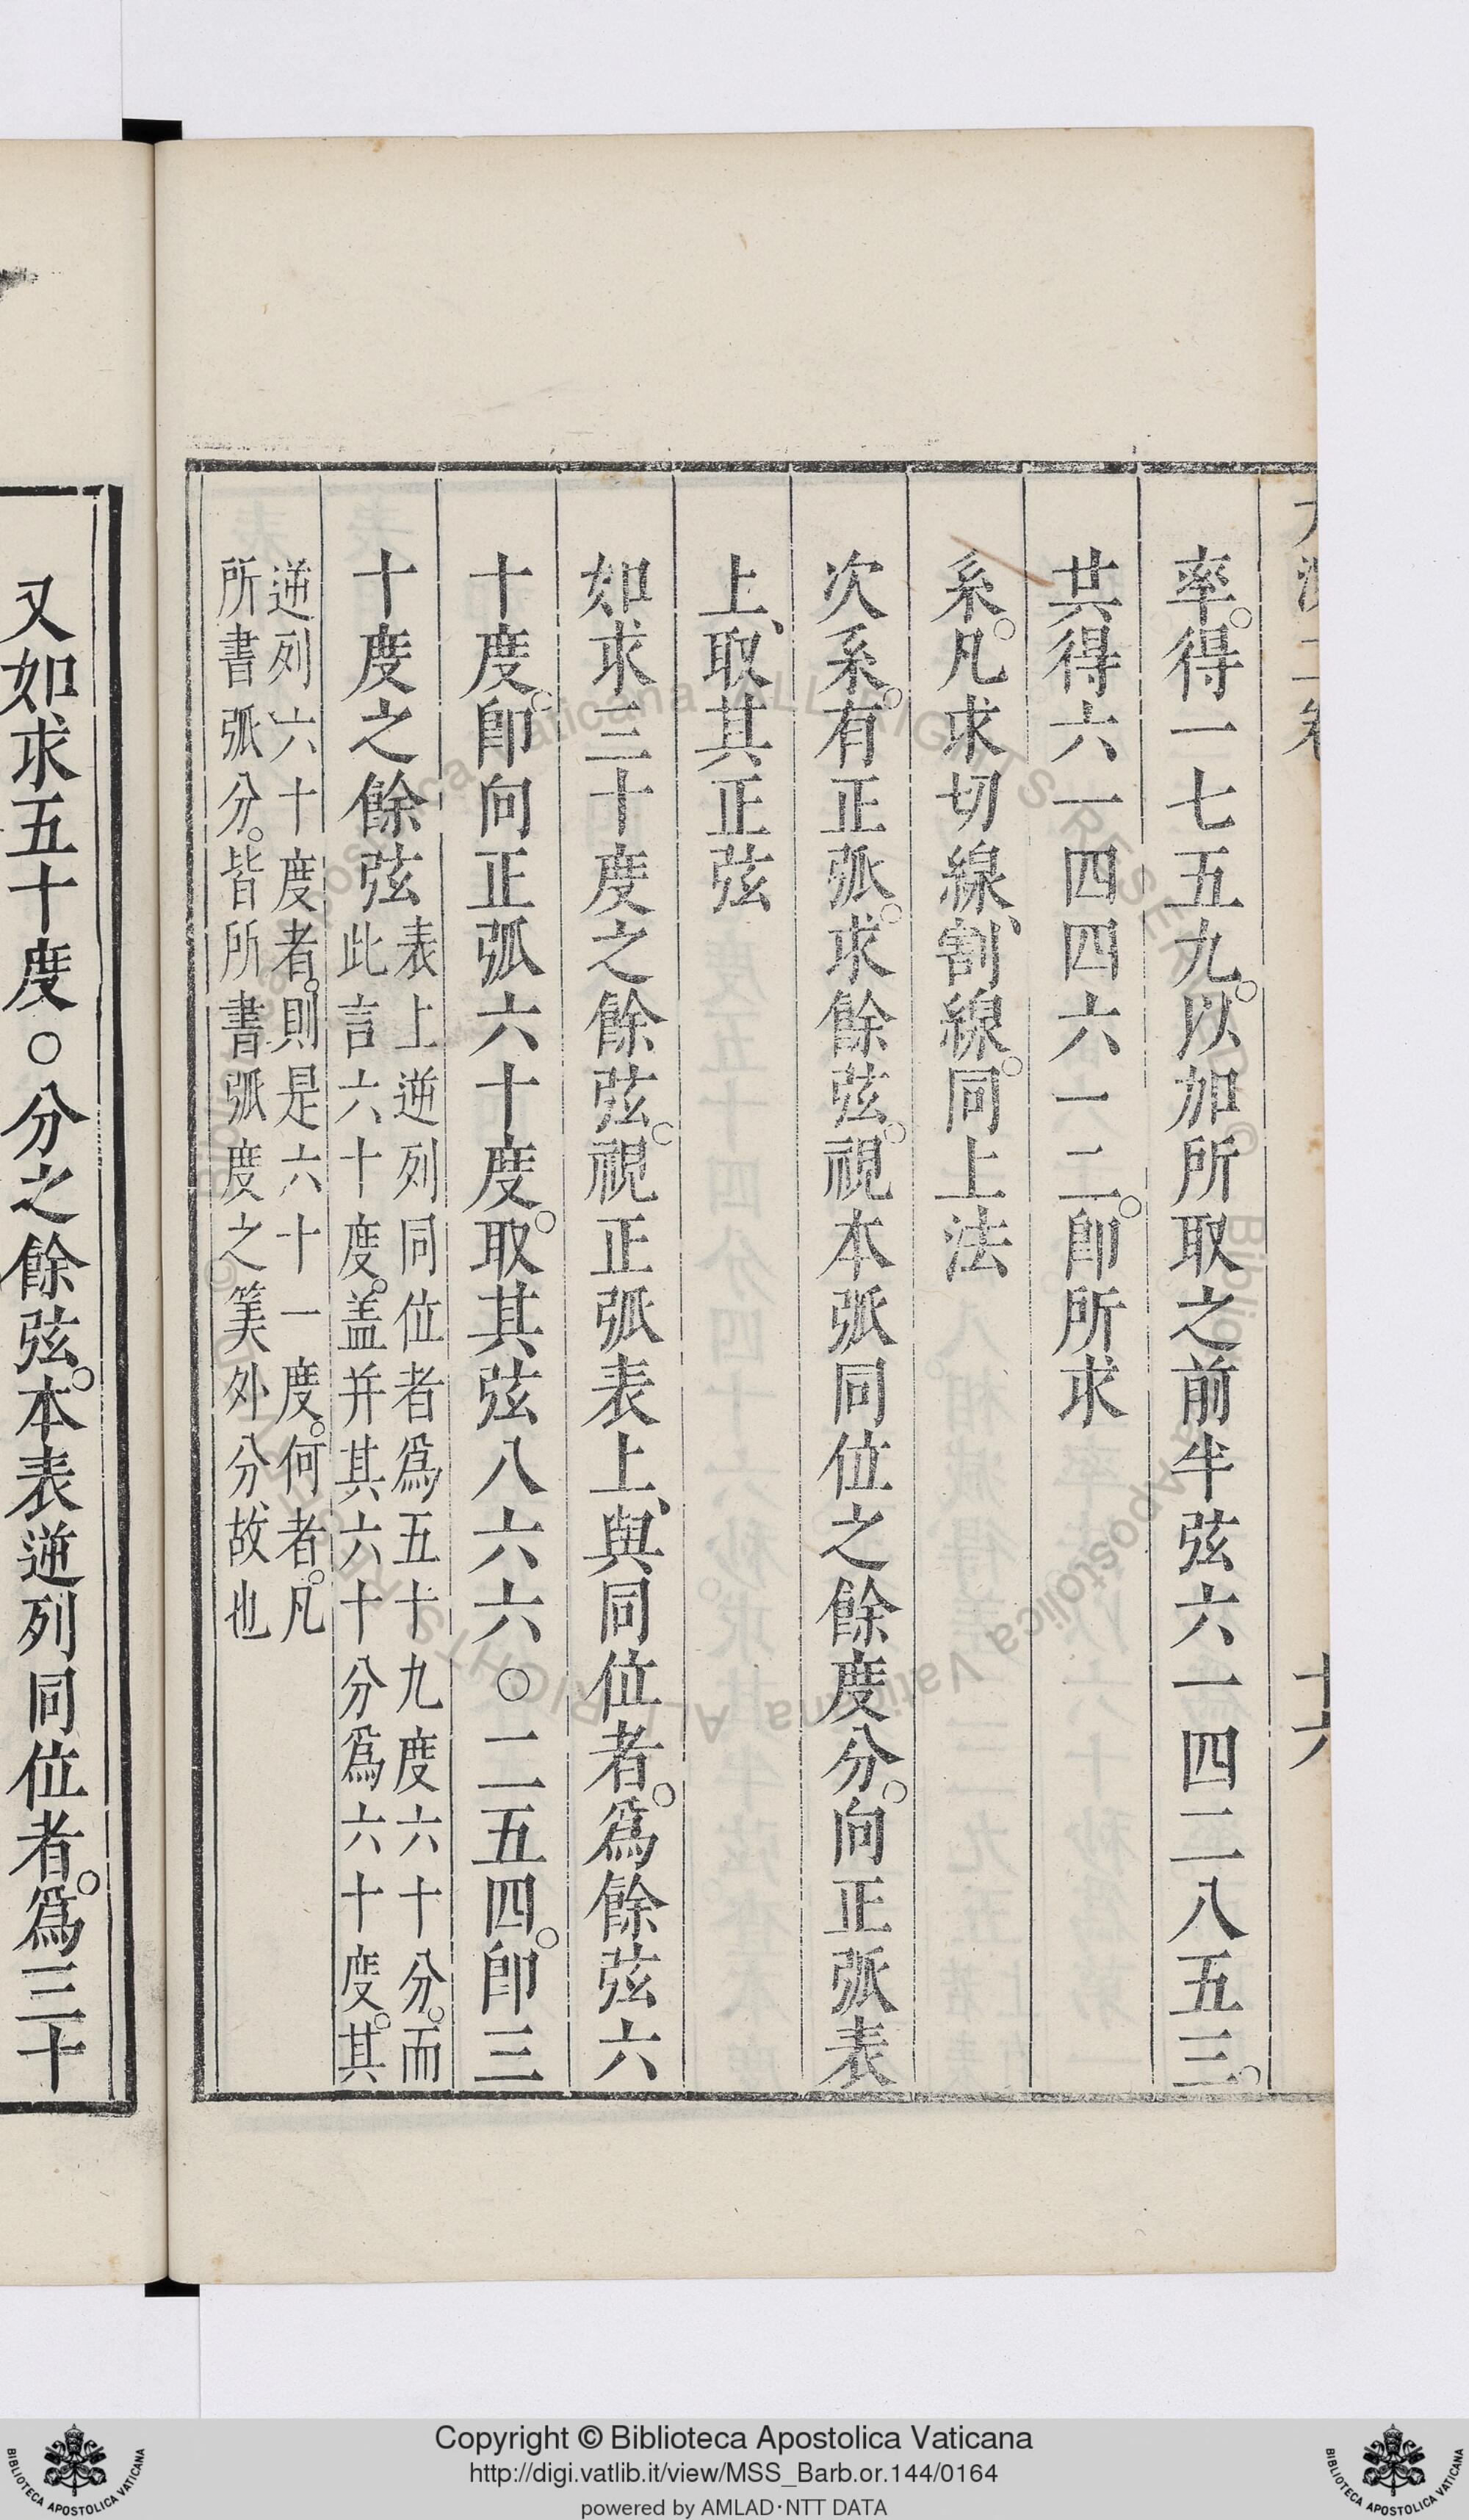 率。得一七五九。以加所取之前半弦六一四二八五三。
共得六一四四六一二。卽所求
系。凡求切線、割線。同上法
次系。有正弧。求餘弦。視本弧同位之餘度分。向正弧表
上、取其正弦
如求三十度之餘弦。視正弧表上、與同位者。爲餘弦六
十度。卽向正弧六十度。取其弦八六六〇二五四。卽三
十度之餘弦
表上逆列同位者爲五十九度六十分。而
此言六十度。盖并其六十分爲六十度。其
逆列六十度者。則是六十一度。何者。凡
所書弧分。皆所書弧度之筭外分故也
又如求五十度〇分之餘弦。本表逆列同位者。爲三十
Copyright © Biblioteca Apostolica Vaticana
http://digi.vatlib.it/view/MSS_Barb.or.144/0164
powered by AMLAD·NTT DATA
BIBLIOTECA APOSTOLICA VATICANA
BIBLIOTECA APOSTOLICA VATICANA